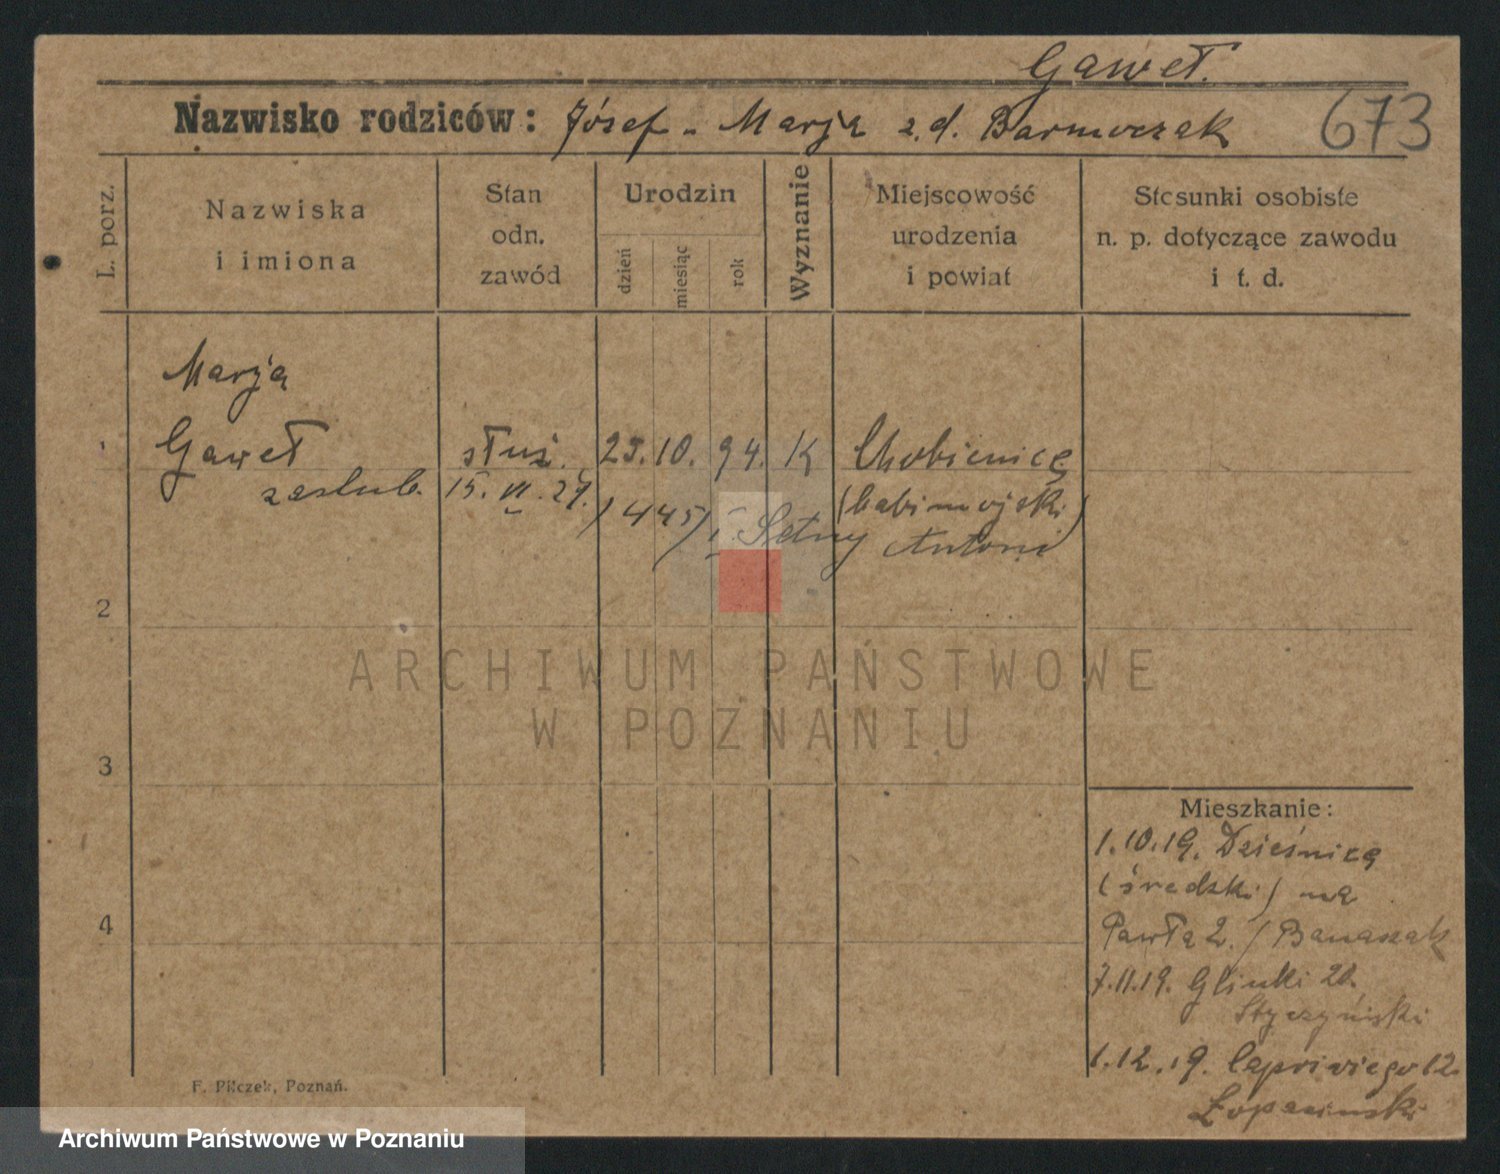 Gaweł.
Nazwisko rodziców: Józef - Marja z.d. Barmuczak 673
L. porz.
Nazwiska
i imiona
Stan
odn.
zawód
Urodzin
dzień
miesiąc
rok
Wyznanie
Miejscowość
urodzenia
i powiat
Stosunki osobiste
n. p. dotyczące zawodu
i t. d.
Marja
1 Gaweł służ. 25. 10. 94. K Chobienice
zaślub. 15. VI. 27. /445/ Setny Antoni
(babimojski)
2
3
4
ARCHIWUM PAŃSTWOWE
W POZNANIU
Mieszkanie:
1.10.19. Dzieśnice
(średzki) na
Pawła 2. / Banaszak
7.11.19. Glinki 20.
Styczyński
1.12.19. Capriviego 12.
Łopaciński
F. Pilczek, Poznań.
Archiwum Państwowe w Poznaniu